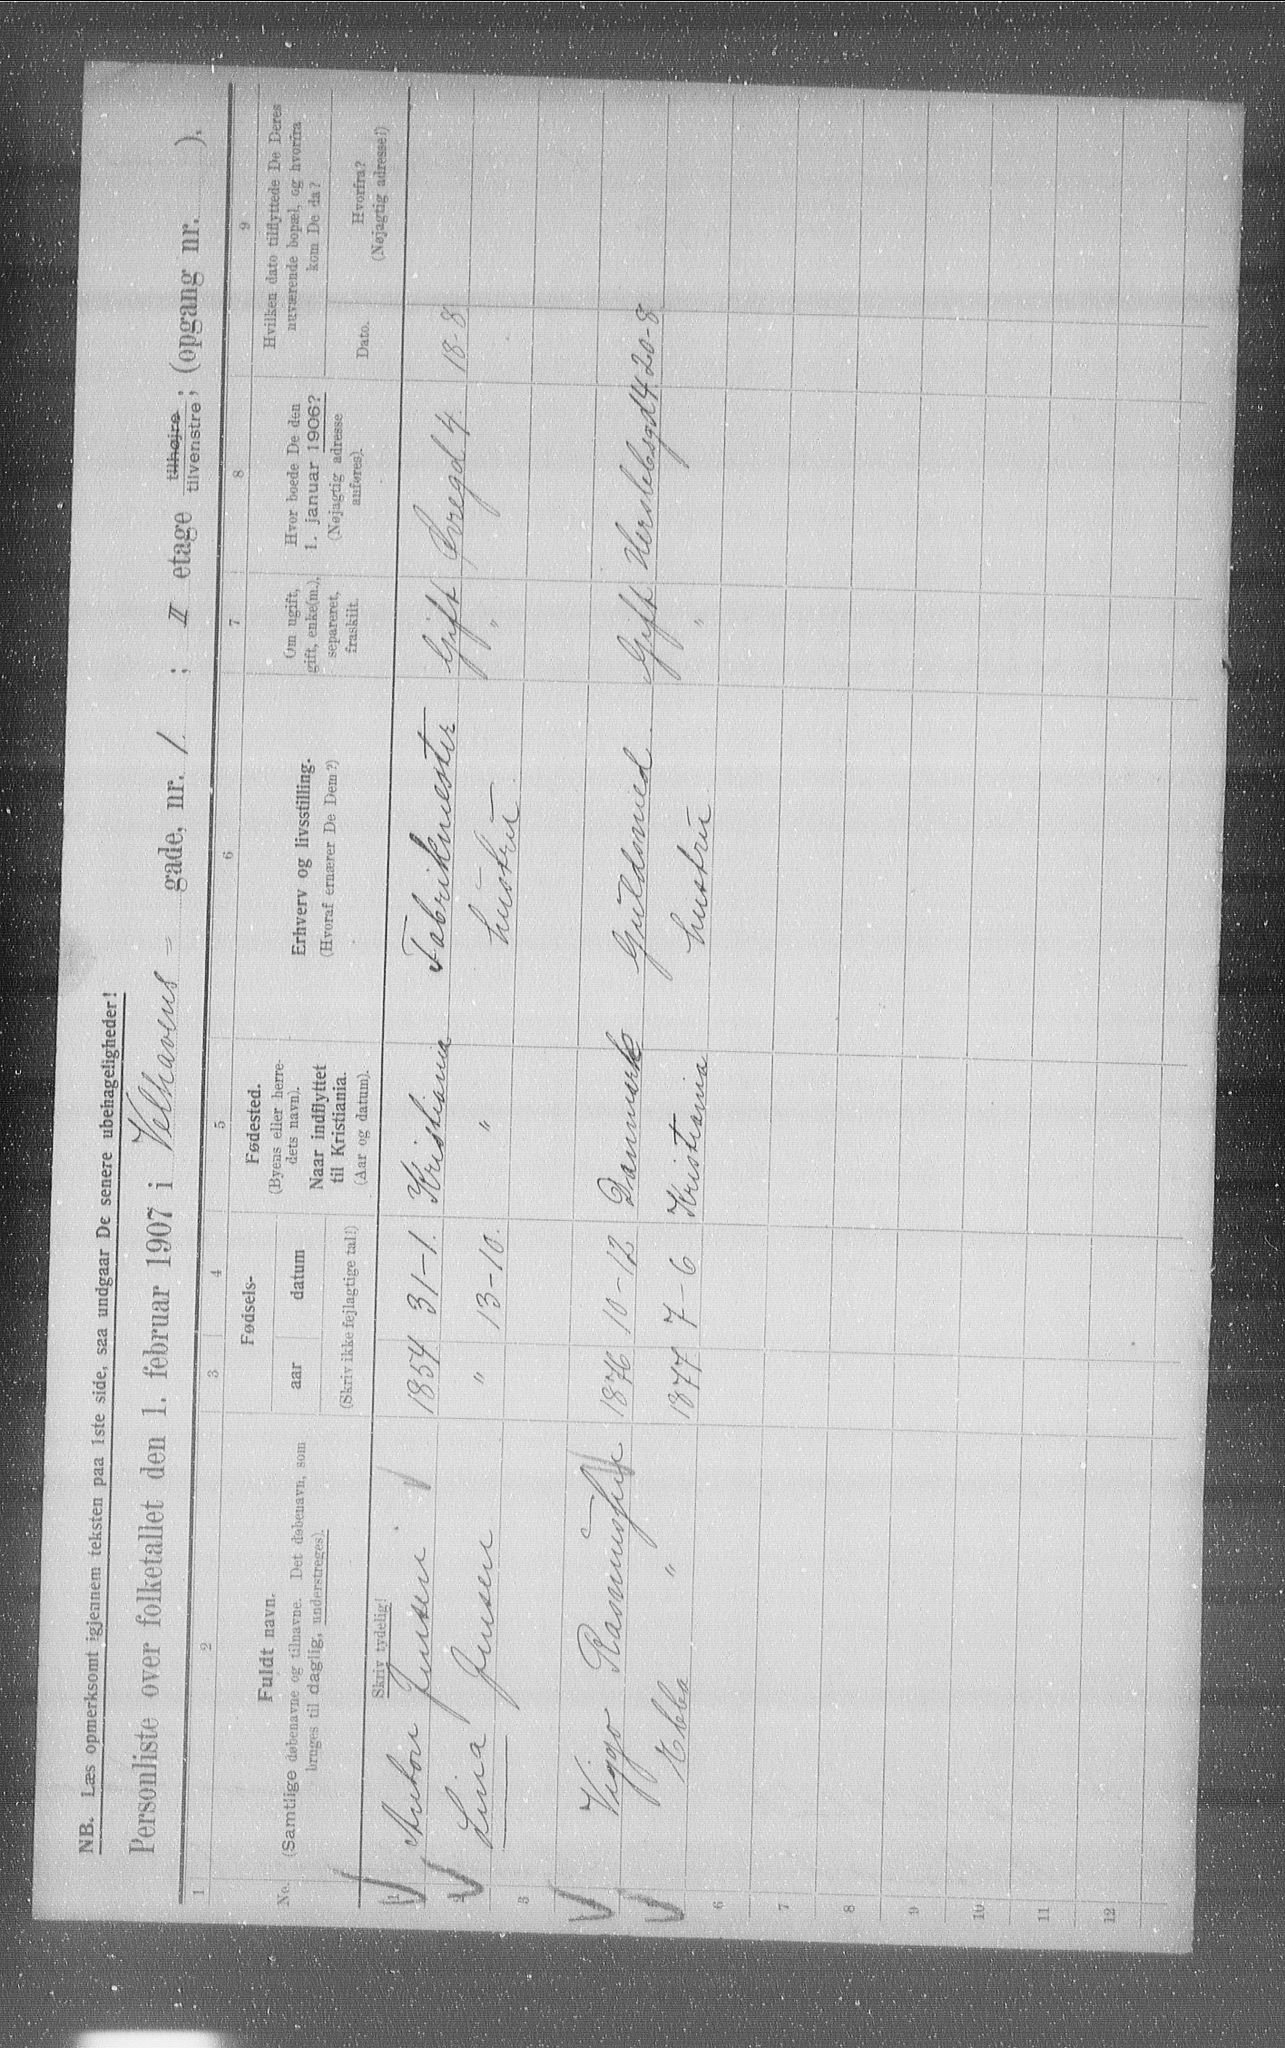 NB. Læs opmerksomt igjennem teksten paa 1ste side, saa undgaar De senere ubehageligheder!
Personliste over folketallet den 1. februar 1907 i Velhavens – gade, nr. 1 ; II etage tilhøjre, tilvenstre; (opgang nr. ).
1 2 3 4 5 6 7 8 9
No.
Fuldt navn.
(Samtlige døbenavne og tilnavne. Det døbenavn, som
bruges til daglig, understreges).
Skriv tydelig!
Fødsels-
aar datum
(Skriv ikke fejlagtige tal!)
Fødested.
(Byens eller herre-
dets navn).
Naar indflyttet
til Kristiania.
(Aar og datum).
Erhverv og livsstilling.
(Hvoraf ernærer De Dem?)
Om ugift,
gift, enke(m.),
separeret,
fraskilt.
Hvor boede De den
1. januar 1906?
(Nøjagtig adresse
anføres).
Hvilken dato tilflyttede De Deres
nuværende bopæl, og hvorfra
kom De da?
Dato.
Hvorfra?
(Nøjagtig adresse!)
1 Anton Jensen 1854 31-1. Kristiania Fabrikmester Gift 4
2 Lina Jensen " 13-10. " hustru " 18-8
3
4 Viggo 1876 10-12 Danmark Guldsmed Gift Herslebsgd 4
5 Ebba " 1877 7-6 Kristiania hustru " 20-8
6
7
8
9
10
11
12